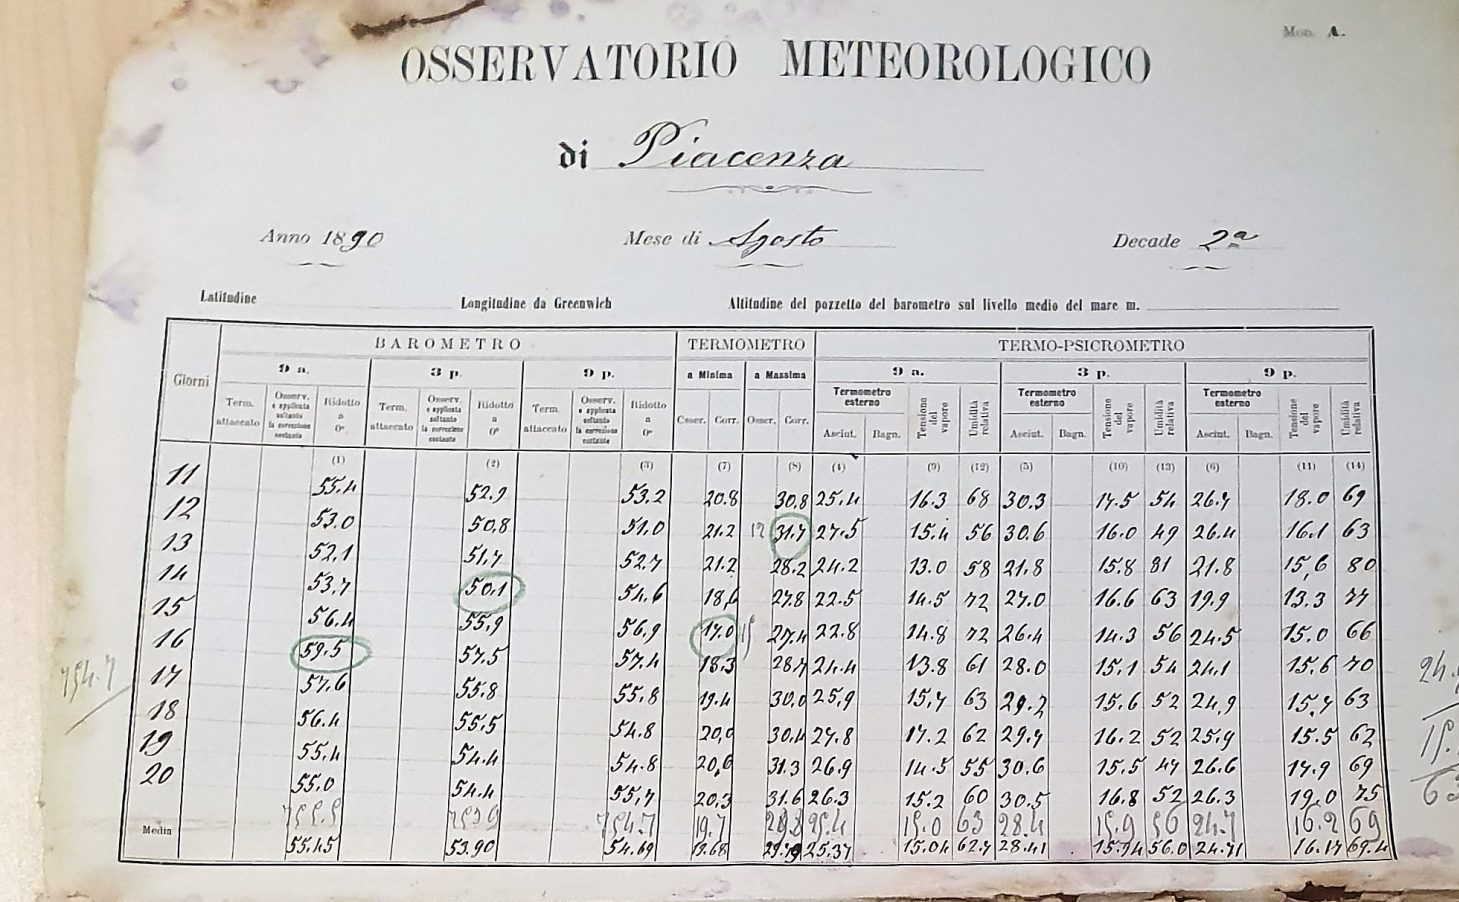 Mod. A.
OSSERVATORIO METEOROLOGICO
di Piacenza
Anno 1890 Mese di Agosto Decade 2ª
Latitudine Longitudine da Greenwich Altitudine del pozzetto del barometro sul livello medio del mare m.
Giorni BAROMETRO TERMOMETRO TERMO-PSICROMETRO
9 a. 3 p. 9 p. a Minima a Massima 9 a. 3 p. 9 p.
Term. attaccato Osserv. e applicata soltanto la correzione costante Ridotto a 0° Term. attaccato Osserv. e applicata soltanto la correzione costante Ridotto a 0° Term. attaccato Osserv. e applicata soltanto la correzione costante Ridotto a 0° Osser. Corr. Osser. Corr. Termometro esterno Asciut. Bagn. Tensione del vapore Umidità relativa Termometro esterno Asciut. Bagn. Tensione del vapore Umidità relativa Termometro esterno Asciut. Bagn. Tensione del vapore Umidità relativa
(1) (2) (3) (7) (8) (4) (9) (12) (5) (10) (13) (6) (11) (14)
11 55.4 52.9 53.2 20.8 30.8 25.4 16.3 68 30.3 17.5 54 26.7 18.0 69
12 53.0 50.8 51.0 21.2 12 31.7 27.5 15.4 56 30.6 16.0 49 26.4 16.1 63
13 52.1 51.7 52.7 21.2 28.2 24.2 13.0 58 21.8 15.8 81 21.8 15.6 80
14 53.7 50.1 54.6 18.6 27.8 22.5 14.5 72 27.0 16.6 63 19.9 13.3 77
15 56.4 55.9 56.9 17.0 15 27.4 22.8 14.8 72 26.4 14.3 56 24.5 15.0 66
16 59.5 57.5 57.4 18.3 28.7 24.4 13.8 61 28.0 15.1 54 24.1 15.6 70
754.7
17 57.6 55.8 55.8 19.4 30.0 25.9 15.7 63 29.2 15.6 52 24.9 15.7 63
18 56.4 55.5 54.8 20.0 30.4 27.8 17.2 62 29.7 16.2 52 25.9 15.5 62
19 55.4 54.4 54.8 20.6 31.3 26.9 14.5 55 30.6 15.5 47 26.6 17.9 69
20 55.0 54.4 55.7 20.3 31.6 26.3 15.2 60 30.5 16.8 52 26.3 19.0 75
755.5 753.9 754.7 19.7 25.4 15.0 63 28.4 15.9 56 24.7 16.2 69
Medin 55.45 53.90 54.69 19.68 29.79 25.37 15.04 62.7 28.41 15.94 56.0 24.71 16.17 69.4